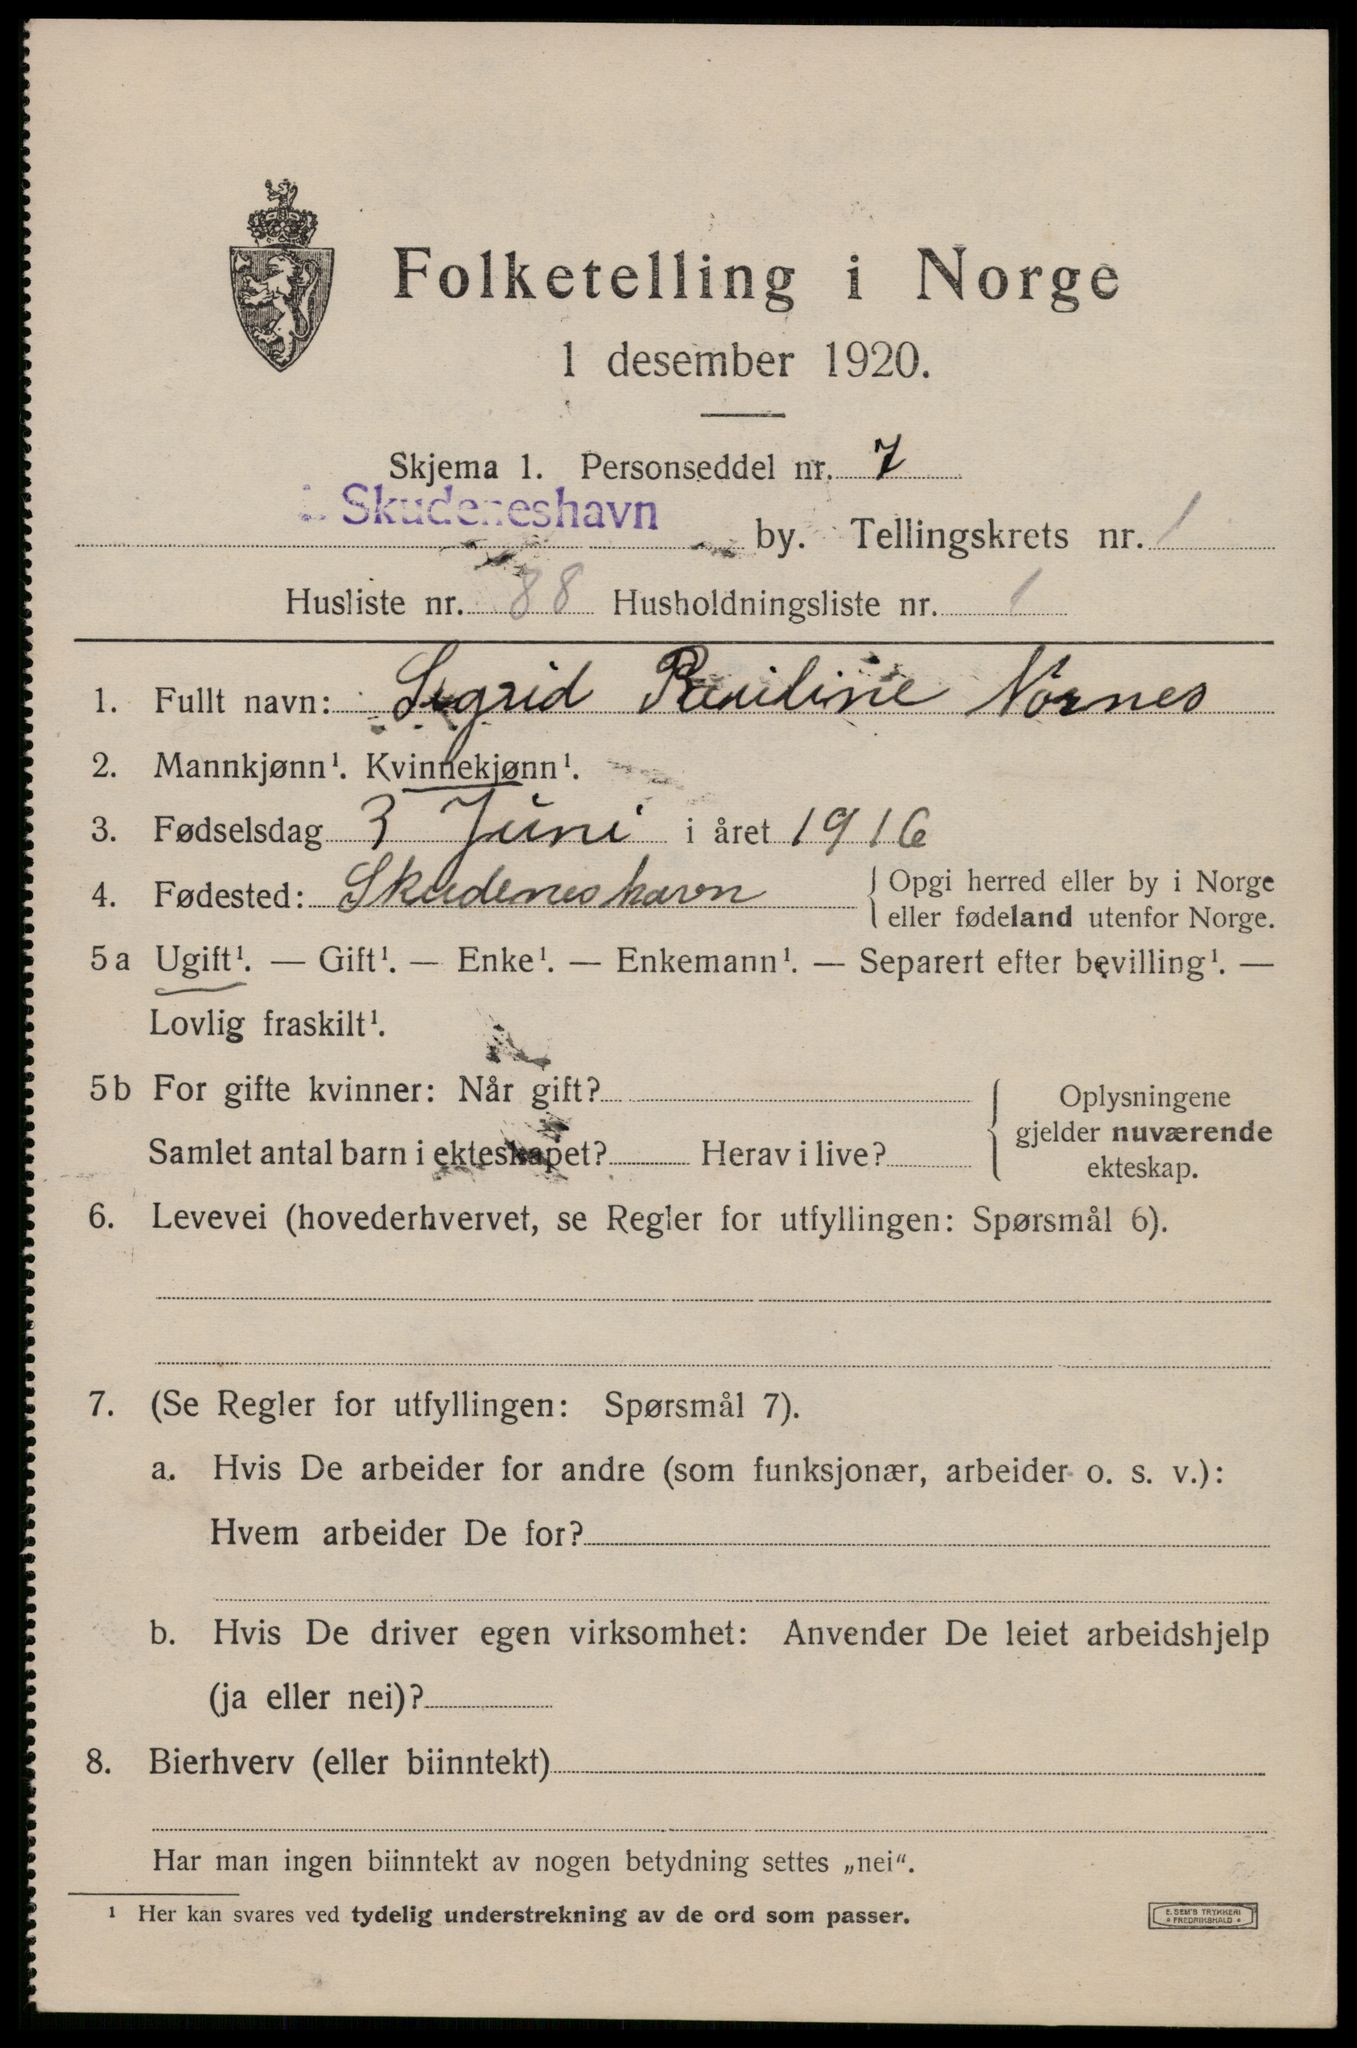 Folketelling i Norge
1 desember 1920.
Skjema 1. Personseddel nr. 7
Skudeneshavn by. Tellingskrets nr. 1
Husliste nr. 88 Husholdningsliste nr. 1
1. Fullt navn: Sigrid Pauline Nornes
2. Mannkjønn¹. Kvinnekjønn¹.
3. Fødselsdag 3 Juni i året 1916
4. Fødested: Skudeneshavn { Opgi herred eller by i Norge
eller fødeland utenfor Norge.
5a Ugift¹. — Gift¹. — Enke¹. — Enkemann¹. — Separert efter bevilling¹. —
Lovlig fraskilt¹.
5b For gifte kvinner: Når gift?
Samlet antal barn i ekteskapet? Herav i live?
{ Oplysningene
gjelder nuværende
ekteskap.
6. Levevei (hovederhvervet, se Regler for utfyllingen: Spørsmål 6).
7. (Se Regler for utfyllingen: Spørsmål 7).
a. Hvis De arbeider for andre (som funksjonær, arbeider o. s. v.):
Hvem arbeider De for?
b. Hvis De driver egen virksomhet: Anvender De leiet arbeidshjelp
(ja eller nei)?
8. Bierhverv (eller biinntekt)
Har man ingen biinntekt av nogen betydning settes „nei“.
¹ Her kan svares ved tydelig understrekning av de ord som passer.
E. SEM'S TRYKKERI
* FREDRIKSHALD *